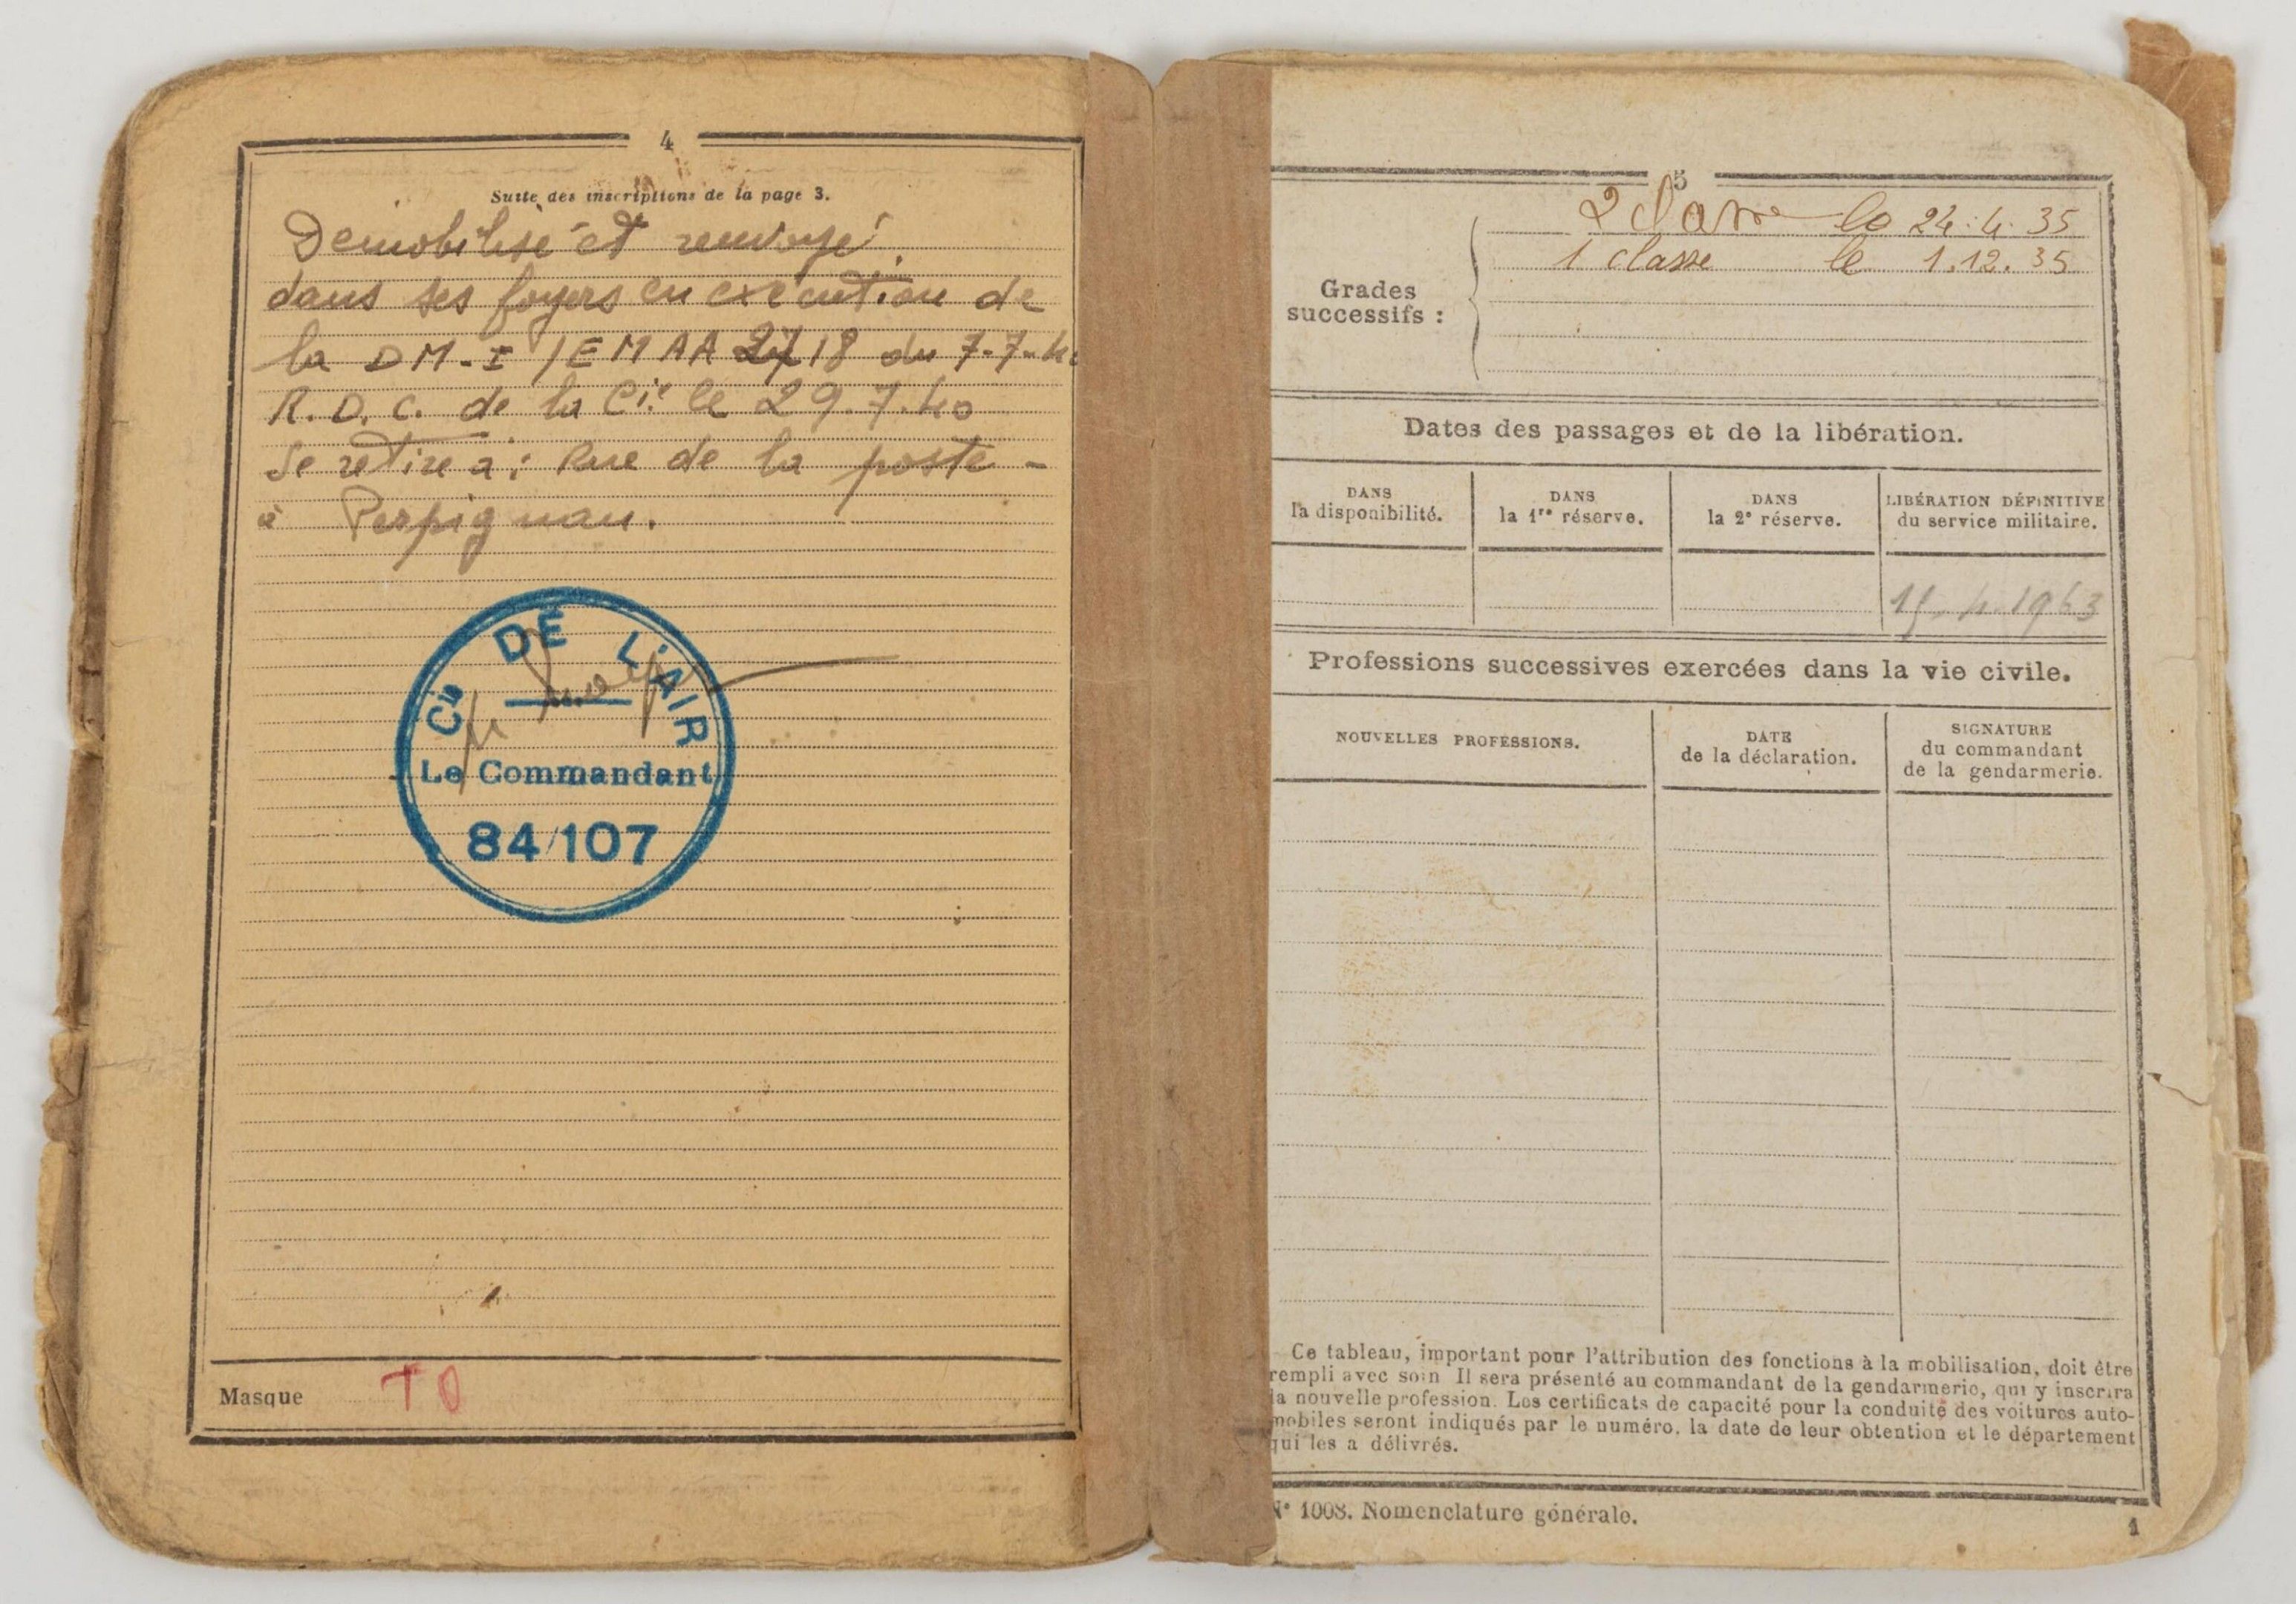 4
Suite des inscriptions de la page 3.
Démobilisé et renvoyé
dans ses foyers en exécution de
la DM-I / EMAA 2718 du 7-7-40
R.D.C. de la Cie le 29.7.40
Se retire à : Rue de la poste -
à Perpignan.
Cie DE L'AIR
Le Commandant
84/107
Masque TO
5
Grades
successifs :
2 classe le 24.4.35
1 classe le 1.12.35
Dates des passages et de la libération.
DANS
la disponibilité.
DANS
la 1re réserve.
DANS
la 2e réserve.
LIBÉRATION DÉFINITIVE
du service militaire.
1963
Professions successives exercées dans la vie civile.
NOUVELLES PROFESSIONS.
DATE
de la déclaration.
SIGNATURE
du commandant
de la gendarmerie.
Ce tableau, important pour l'attribution des fonctions à la mobilisation, doit être
rempli avec soin Il sera présenté au commandant de la gendarmerie, qui y inscrira
la nouvelle profession. Les certificats de capacité pour la conduite des voitures auto-
mobiles seront indiqués par le numéro, la date de leur obtention et le département
qui les a délivrés.
N° 1008. Nomenclature générale.
1